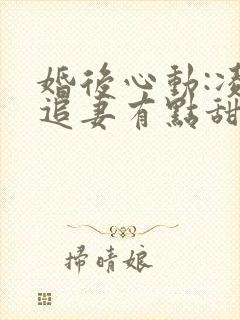 婚後心動:凌
追妻有點甜
掃晴娘